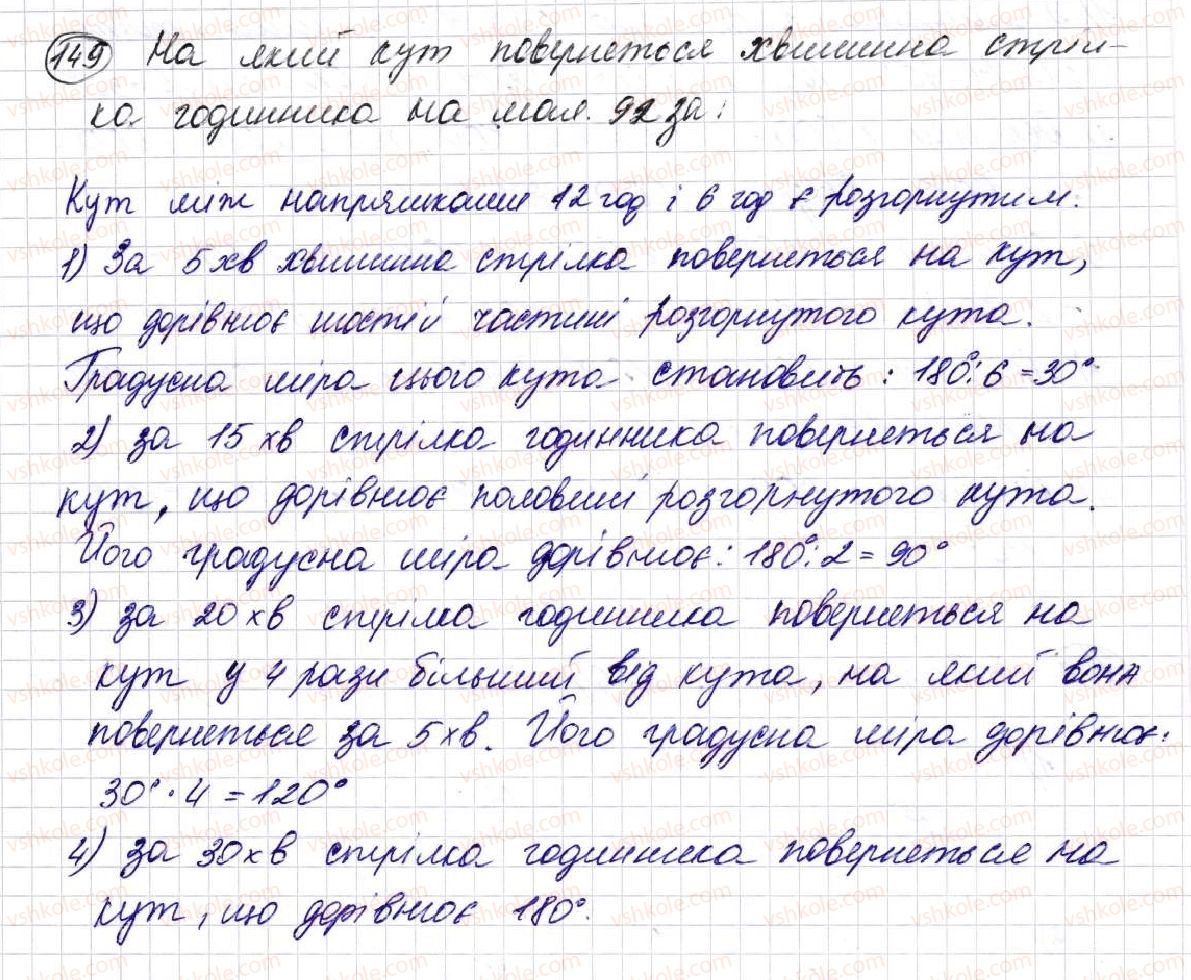 149 На який кут повернеться хвилинна стріл-
ка годинника на мал. 92 за:
Кут між напрямками 12 год і 6 год є розгорнутим.
1) За 5 хв хвилинна стрілка повернеться на кут,
що дорівнює шостій частині розгорнутого кута.
Градусна міра цього кута становить: 180°:6=30°
2) за 15 хв стрілка годинника повернеться на
кут, що дорівнює половині розгорнутого кута.
Його градусна міра дорівнює: 180°:2=90°
3) за 20 хв стрілка годинника повернеться на
кут у 4 рази більший від кута, на який вона
повернеться за 5 хв. Його градусна міра дорівнює:
30°·4=120°
4) за 30 хв стрілка годинника повернеться на
кут, що дорівнює 180°.